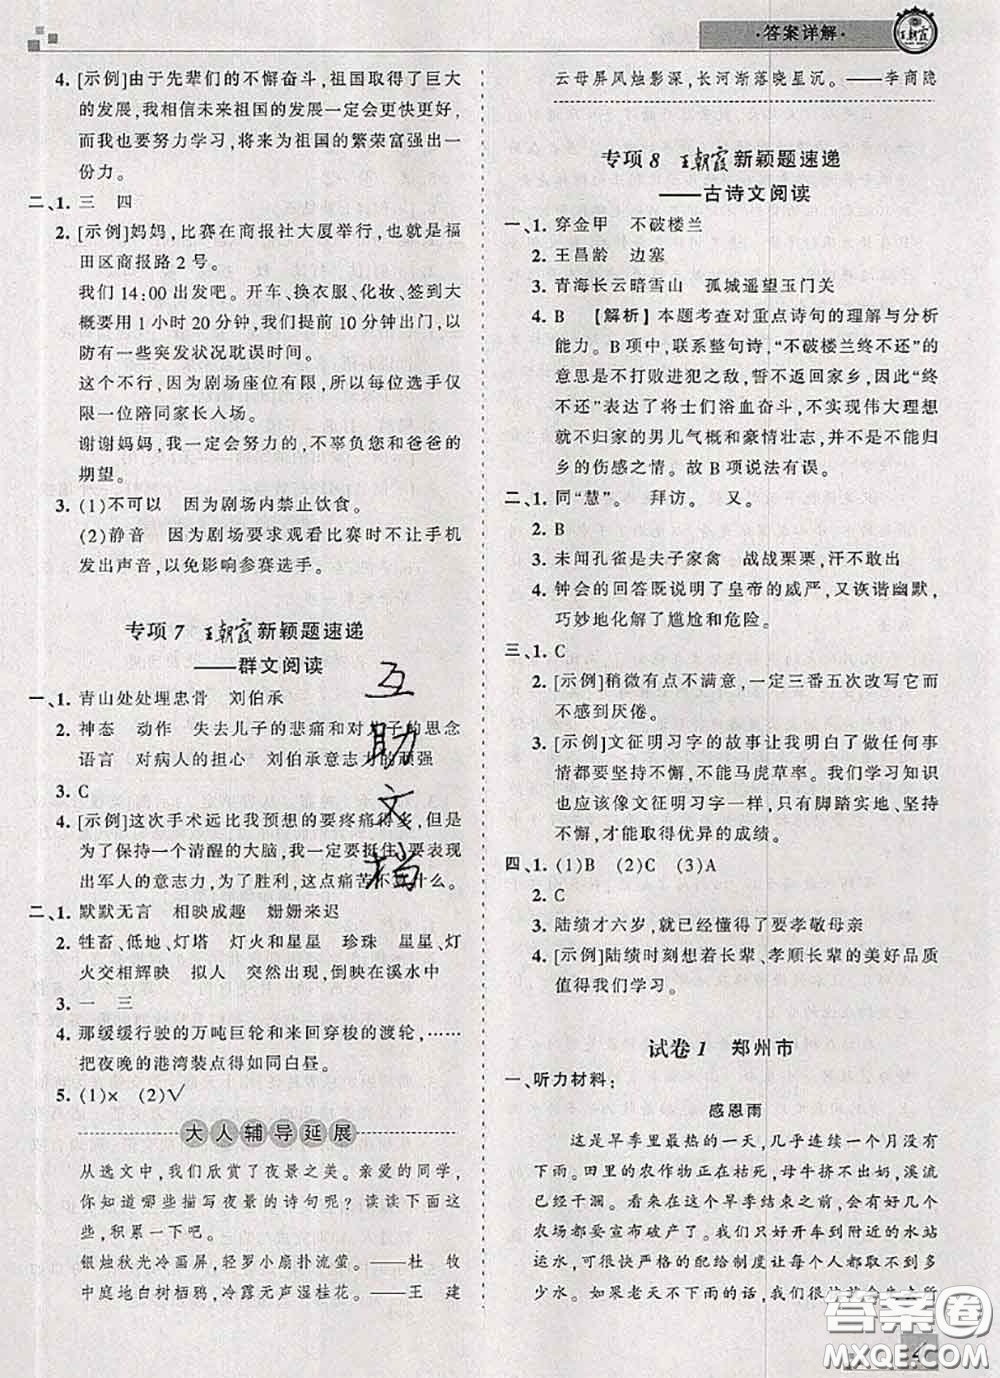 ·答案详解·
王朝霞
4. [示例]由于先辈们的不懈奋斗，祖国取得了巨大
的发展，我相信未来祖国的发展一定会更快更好，
而我也要努力学习，将来为祖国的繁荣富强出一
份力。
二、1. 三　四
2. [示例]妈妈，比赛在商报社大厦举行，也就是福
田区商报路 2 号。
我们 14:00 出发吧。开车、换衣服、化妆、签到大
概要用 1 小时 20 分钟，我们提前 10 分钟出门，以
防有一些突发状况耽误时间。
这个不行，因为剧场座位有限，所以每个选手仅
限一位陪同家长入场。
谢谢妈妈，我一定会努力的，不辜负您和爸爸的
期望。
3. (1)不可以　因为剧场内禁止饮食。
(2)静音　因为剧场要求观看比赛时不让手机
发出声音，以免影响参赛选手。
专项 7　王朝霞新颖题速递
——群文阅读
一、1. 青山处处埋忠骨　刘伯承
2. 神态　动作　失去儿子的悲痛和对儿子的思念
语言　对病人的担心　刘伯承意志力的顽强
3. C
4. [示例]这次手术远比我预想的要疼痛得多，但是
为了保持一个清醒的大脑，我一定要挺住，要表现
出军人的意志力，为了胜利，这点痛苦不算什么。
二、1. 默默无言　相映成趣　姗姗来迟
2. 牲畜、低地、灯塔　灯火和星星　珍珠　星星、灯
火交相辉映　拟人　突然出现，倒映在溪水中
3. 一　三
4. 那缓缓行驶的万吨巨轮和来回穿梭的渡轮，……
把夜晚的港湾装点得如同白昼。
5. (1)×　(2)√
大人辅导延展
从选文中，我们欣赏了夜景之美。亲爱的同学，
你知道哪些描写夜景的诗句呢？读读下面这
些，积累一下吧。
银烛秋光冷画屏，轻罗小扇扑流萤。——杜　牧
中庭地白树栖鸦，冷露无声湿桂花。——王　建
云母屏风烛影深，长河渐落晓星沉。——李商隐
专项 8　王朝霞新颖题速递
——古诗文阅读
一、1. 穿金甲　不破楼兰
2. 王昌龄　边塞
3. 青海长云暗雪山　孤城遥望玉门关
4. B　[解析] 本题考查对重点诗句的理解与分析
能力。B 项中，联系整句诗，“不破楼兰终不还”的
意思是不打败进犯之敌，誓不返回家乡，因此“终
不还”表达了将士们浴血奋斗，不实现伟大理想
就不归家的男儿气概和豪情壮志，并不是不能归
乡的伤感之情。故 B 项说法有误。
二、1. 同“慧”。　拜访。　又。
2. B
3. 未闻孔雀是夫子家禽　战战栗栗，汗不敢出
4. 钟会的回答既说明了皇帝的威严，又诙谐幽默，
巧妙地化解了尴尬和危险。
三、1. C
2. [示例]稍微有点不满意，一定三番五次改写它而
不感到厌倦。
3. [示例]文征明习字的故事让我明白了做任何事
情都要坚持不懈，不能马虎草率。我们学习知识
也应该像文征明习字一样，只有脚踏实地、坚持
不懈，才能取得优异的成绩。
四、1. (1)B　(2)C　(3)A
2. C
3. 陆绩才六岁，就已经懂得了要孝敬母亲
4. [示例]陆绩时刻想着长辈、孝顺长辈的美好品质
值得我们学习。
试卷 1　郑州市
一、听力材料：
感恩雨
这是旱季里最热的一天，几乎连续一个月没有
下雨。田里的农作物正在枯死，母牛挤不出奶，溪流
已经干涸。看来在这个旱季结束之前，会有好几个
农场都要宣布破产了。我们只好开车到附近的水站
运水，可是因为严格的配给制度让我们运不到多
少水。如果老天不下雨的话，我们很快
互助文档
答案圈
MXQE.COM